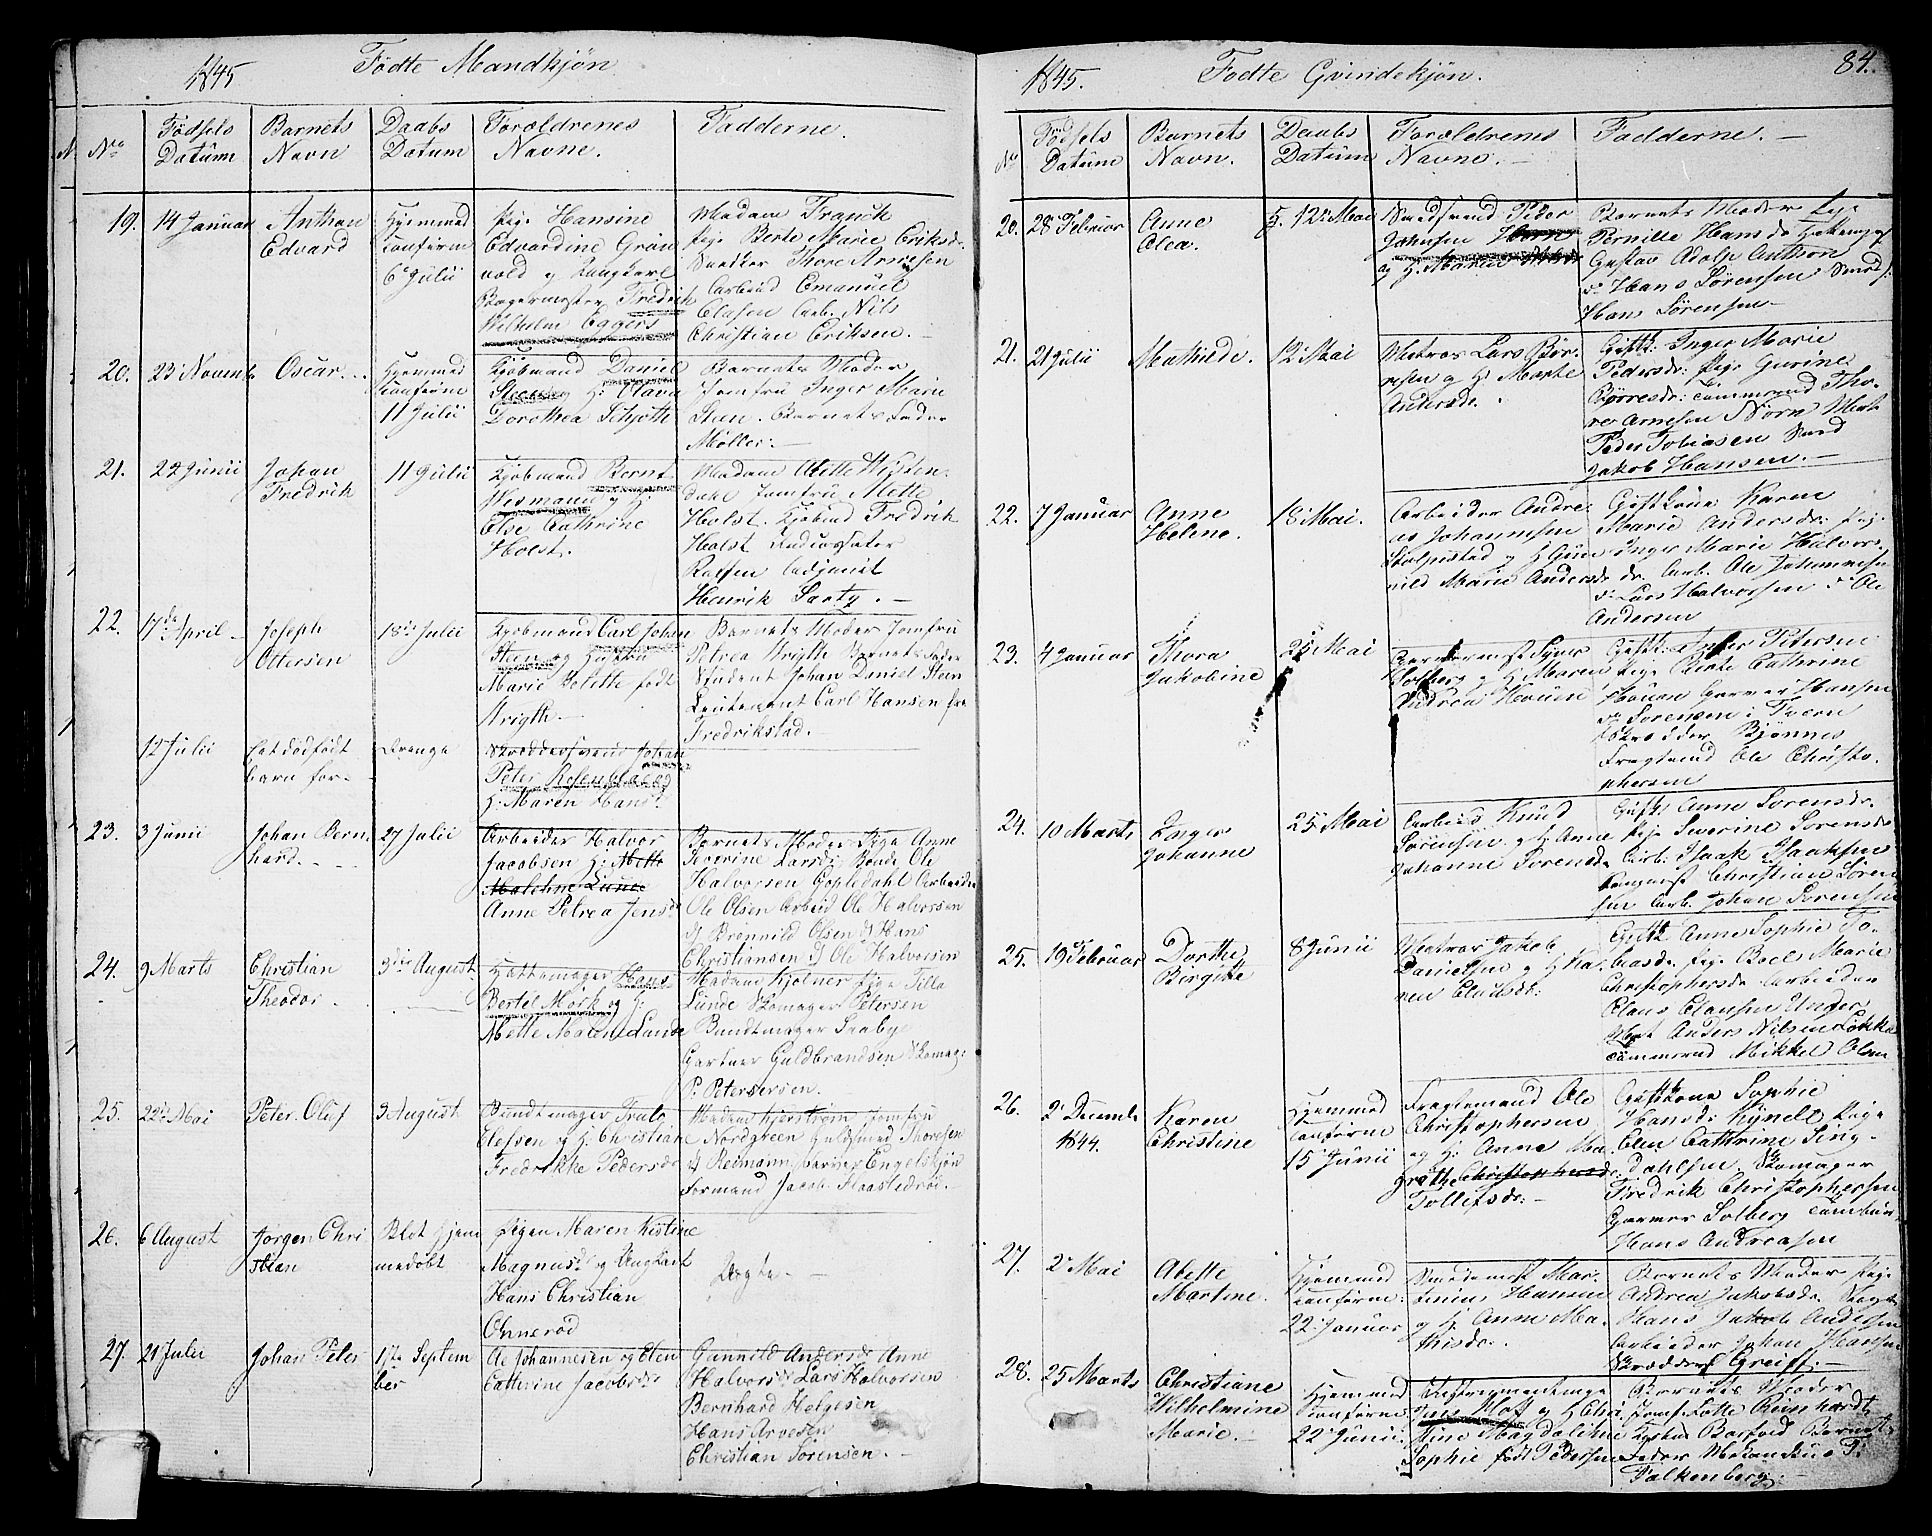 1845 Fødte Mandkjøn
No Fødsels Datum Barnets Navn Daabs Datum Forældrenes Navne. Fadderne.
19. 14 Januar Anthon Edvard Hjemmed
confirm 6 Julii
Pige Hansine
Edvardine Grön
vold og Ungkarl
Bagermester Fredrik
Wilhelm Eggers
Madam Franck
Pige Berte Marie Eriksd.
Snedker Thore Arvesen
Arbeid Emanuel
Olasen Arb. Nils
Christian Eriksen.
20. 23 Novemb Oscar. Hjemmed
11 Julii
Kjøbmand Daniel
Steen og H: Olava
Dorothea Schjøtt
Barnets Moder
Jomfru Inger Marie
Steen. Barnets Fader
Møller.
21. 22 Junii Johan
Fredrik
11 Julii
Kjøbmand Bernt
Wismann og H:
Else Cathrine
Holst.
Madam Abette Wisten
Jomfru Mette
Holst. Kjøbmd Fredrik
Holst
Henrik Sartz.
22. 17de April Joseph
Ottersen
18de Julii
Kjøbmand Carl Johan
Steen og Hustru
Marie født
Wrigth.
Barnets Moder Jomfru
Petrea Wrigth Barnets Fader
Student Johan Daniel Steen
Leutenant Carl Hansen fra
Fredrikstad.
12 Julii Et dødfødt
barn for
Drenge
Skreddersvend Johan
Peter
H: Maren Hansd.
23. 3 Junii Johan Bern
hard.
27 Julii
Arbeider Halvor
Jacobsen H: Mette
Malehne Lunde
Anne Petrea Jensd
Barnets Moder Pige Anne
Severine Larsd: Bonde Ole
Halvorsen Gopledahl Arbeider
Ole Olsen Arbeid Ole Halvorsen
d. Brønnild Olsen d. Hans
Christiansen d. Ole Halvorsen
24. 9 Marts Christian
Theodor.
3die August
Hattemager Hans
Bertel Mørk og H:
Mette Malene Lunde
Madam Kjølner Pige Tilla
Lunde Skomager Petersen
Bundtmager Saaby
Gartner Guldbrandsen Skomag:
P. Petersersen.
25. 22de Mai Peter Oluf 3 August
Bundtmager Truls
Olefsen og H: Christiane
Fredrikke Pedersd.
Madam Kjerstrøm Jomfru
Nordgreen Guldsmed Thoresen
d. Reimann Murer Engelskjøn
Formand Jacob Haastedrød.
26. 6 August Jørgen Chri
stian
Blot Hjem
medøbt
Pigen Maren Kistine
Magnusd og Ungkarl
Hans Christian
Onnerød
Uægte.
27. 21 Julii Johan Peter 17de Septem
ber
Ole Johannesen og Elen
Cathrine Jacobsd:
Gunnild Andersd Anne
Halvorsd Lars Halvorsen
Bernhard Helgesen
Hans Arvesen
Christian Sørensen.
1845. Fødte Qvindekjøn. 84.
No Fødsels Datum Barnets Navn. Daabs Datum Forældrenes Navne. Fadderne.
20. 28 Februar Anne
Olea.
12 Mai
Smedsvend Peder
Johnsen
og H: Maren
Barnets Moder Pige
Pernille Hansd
Gustav Adolp Anthon
d. Hans Sørensen Smeds.
Hans Sørensen
21. 21 Julii Mathilde. 12 Mai
Matros Lars Bør-
resen og H: Marthe
Andersd.
Giftk: Inger Marie
Pedersd: Pige Gurine
Børresd: Tømmermd Tho-
re Arnesen Nørn Mat
Peder Tobiasen Smed
Jakob Hansen.
22. 7 Januar Anne
Helene.
18 Mai.
Arbeider Andre
as Johannesen
og H: Gun
nild Marie Andersd
Giftkone Karen
Marie Andersd: Pige
Inger Marie Halvors
d. Arb. Ole Johannesen
d. Lars Halvorsen d. Ole
Andersen
23. 4 Januar Thora
Jakobine
25 Mai
Solberg og H: Maren
Andrea Houen
Giftk: Petersen
Pige Berte Cathrine
Houen Garver Hansen
d. Sørensen i Tveen
Skræder Bjønnes
Fragtmd Ole Christo
phersen
24. 10 Marts Inger
Johanne
25 Mai
Arbeid Knud
Sørensen og H: Anne
Johanne Sorensd.
Giftk Anne Sorensd.
Pige Severine Sorensd
Arb. Isaak Isaaksen
Christian Søren
sen Arb. Johan Sørensen
25. 19 Februar Dorthe
Birgitte
8 Junii
Matros Jakob
Danielsen og H: Ka-
ren Clausd:
Giftk Anne Sophie To-
biasd. Pige Boel Marie
Christophersd. Arbeider
Claus Clausen Unger
Mat Anders Nilsen Løkke
Tømmermd Mikkel Olsen
26. 2 Decemb
1844.
Karen
Christine
Hjemmed
15 Junii
Fragtemand Ole
Christophersen
og H: Anne Ma
grethe Christophersd.
Tollefsd:
Giftkone Sophie
Hansd: Kynell Pige
Elen Cathrine Sing-
dahlsen. Skomager
Fredrik Christophersen
Garver Solberg
Hans Andreasen
27. 2 Mai Abette
Martine.
Hjemmed
22 Januar
Smedemest Mar-
tinius Hansen
og H: Anne Ma-
thisd.
Barnets Moder Pige
Andrea Jakobsd.
Hans Jakob Andersen
Arbeider Johan Hansen
Skrædder Greiff.
28. 25 Marts Christiane
Wilhelmine
Marie.
Hjemmed
22 Junii
Instrumentmager
Jens Hoff og H: Chri
stine Magdalene
Sophie født Pedersen
Barnets Moder
Jomf Lotte Reinhardt
Barfoed Barnets
Fader P:
Falkenberg.